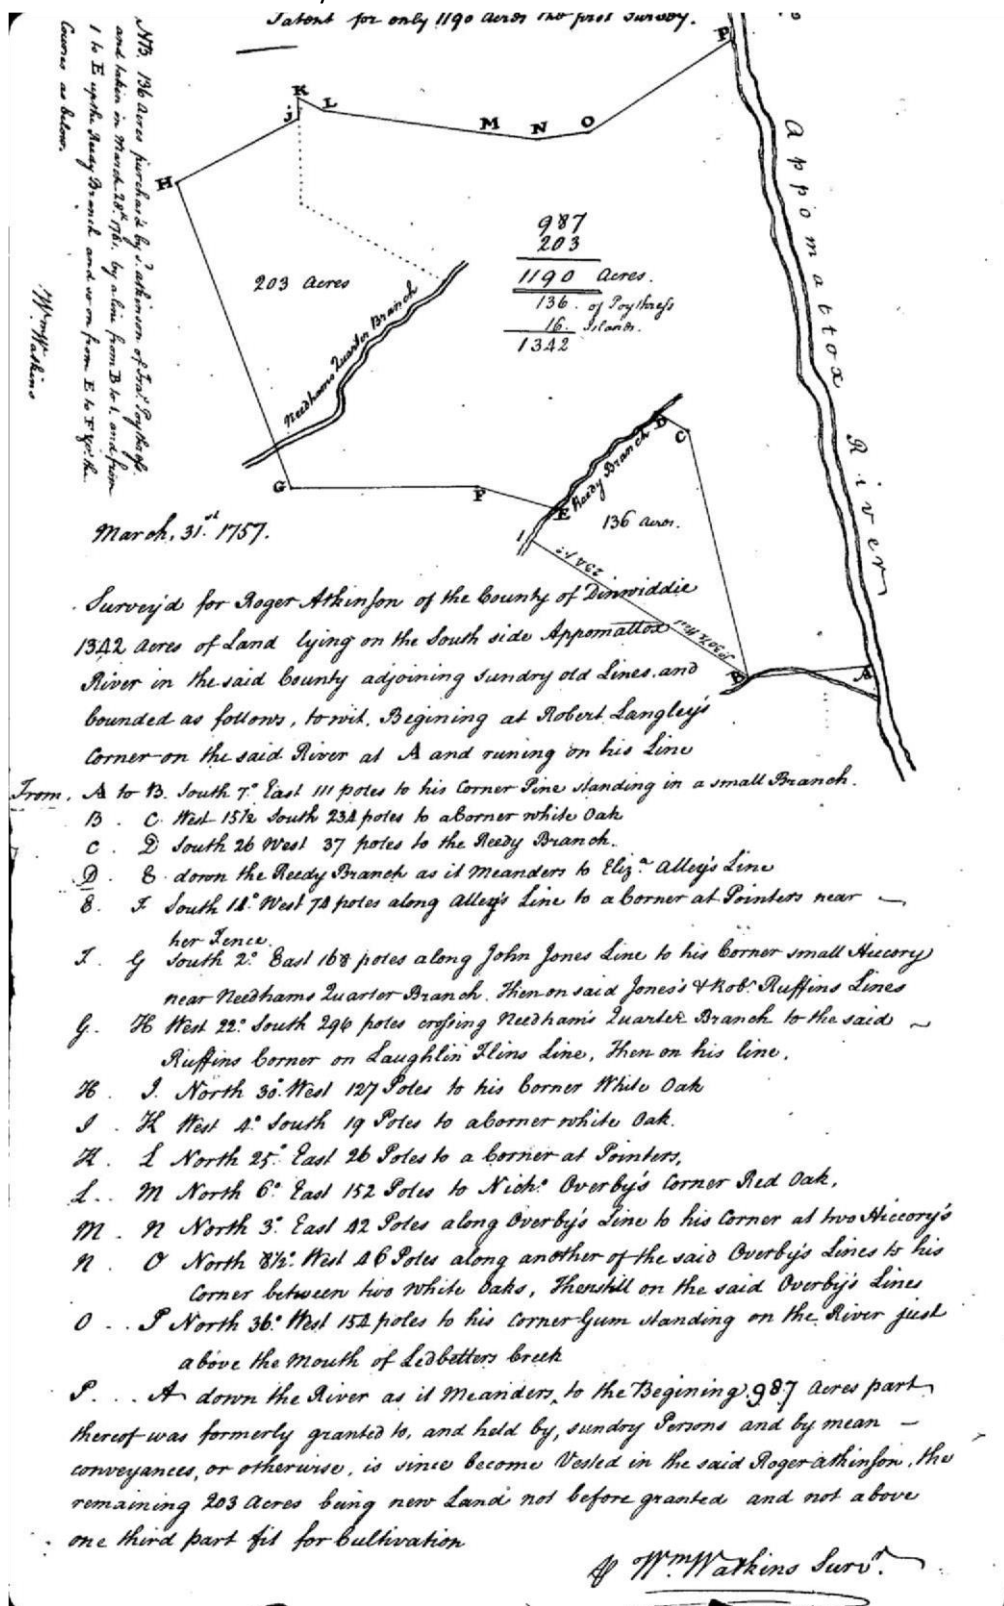 Patent for only 1190 Acres the first Survey.
NB. 136 Acres purchas'd by sd. Atkinson of Fras. Poythress.
and taken in March 28th. 1761. by a line from B to 1. and from
1 to E up the Reedy Branch and so on from E to F &c. the
Courses as below.
Wm. Watkins
P
K
L
j
M
N
O
H
Appomattox River
987
203
1190 Acres.
136. of Poythress
16. Islands.
1342
203 Acres
Needhams Quarter Branch
D
C
Reedy Branch
G
F
E
1
136 Acres.
234 po:
B
A
March, 31st. 1757.
Survey'd for Roger Atkinson of the County of Dinwiddie
1342 Acres of Land lying on the South side Appomattox
River in the said County adjoining sundry old Lines, and
bounded as follows, to wit. Begining at Robert Langley's
Corner on the said River at A and runing on his Line
From. A to B. South 7°. East 111 poles to his Corner Pine standing in a small Branch.
B . C West 15½ South 234 poles to a Corner white Oak
C . D South 26 West 37 poles to the Reedy Branch.
D . E down the Reedy Branch as it Meanders to Eliza. Alley's Line
E . F South 14°. West 74 poles along Alley's Line to a Corner at Pointers near
her Fence.
F . G South 2°. East 168 poles along John Jones Line to his Corner small Hiccory
near Needhams Quarter Branch. Then on said Jones's & Robt. Ruffins Lines
G . H West 22°. South 296 poles crossing Needham's Quarter Branch to the said
Ruffins Corner on Laughlin Flins Line, Then on his line.
H . J. North 30°. West 127 Poles to his Corner White Oak
J . K West 4°. South 19 Poles to a Corner white Oak.
K . L North 25°. East 26 Poles to a Corner at Pointers.
L . . M North 6°. East 152 Poles to Nichs. Overby's Corner Red Oak.
M . N North 3°. East 42 Poles along Overby's Line to his Corner at two Hiccory's
N . O North 8½°. West 46 Poles along another of the said Overby's Lines to his
Corner between two white Oaks, Then still on the said Overby's Lines
O . . P North 36°. West 154 poles to his Corner Gum standing on the River just
above the Mouth of Ledbetters Creek
P . . . A down the River as it Meanders, to the Begining. 987 Acres part
thereof was formerly granted to, and held by, sundry Persons and by mean
conveyances, or otherwise, is since become Vested in the said Roger Atkinson, the
remaining 203 Acres being new Land not before granted and not above
one third part fit for Cultivation
Wm. Watkins Survr.